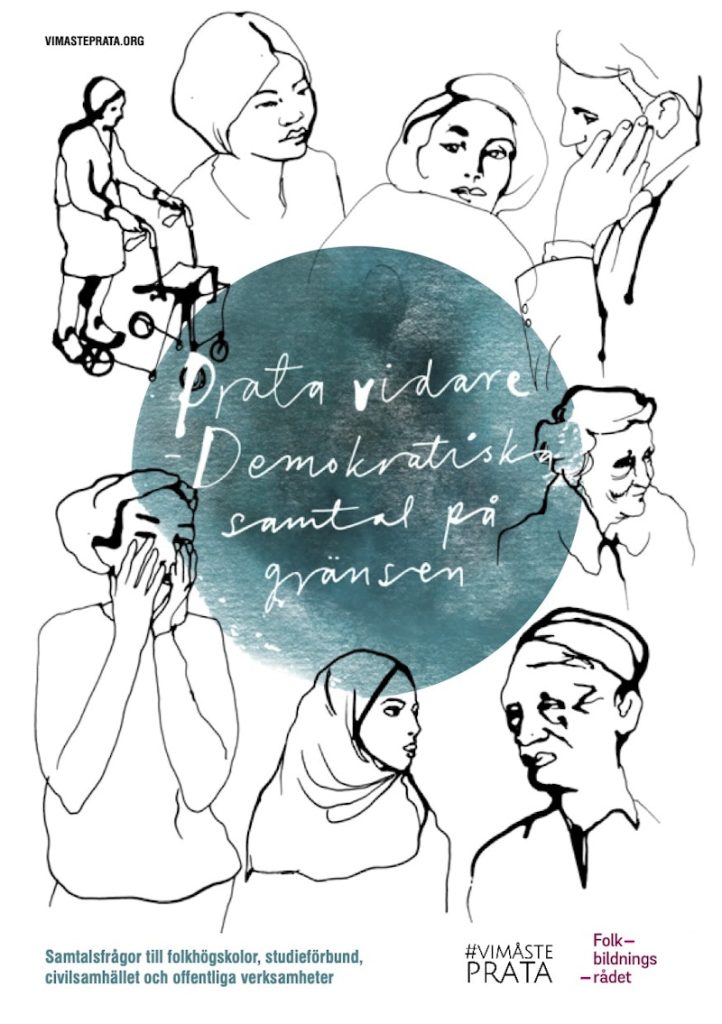 VIMASTEPRATA.ORG
Prata vidare
- Demokratiska
samtal på
gränsen
Samtalsfrågor till folkhögskolor, studieförbund,
civilsamhället och offentliga verksamheter
#VIMÅSTE
PRATA
Folk–
bildnings
–rådet